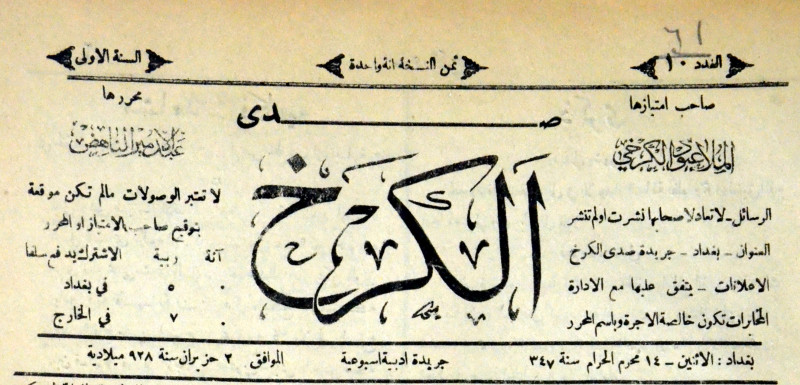 ٦١
العدد ١٠
ثمن النسخة انة واحدة
السنة الاولى
صاحب امتيازها
الملا عبود الكرخي
الرسائل ـ لا تعاد لاصحابها نشرت او لم تنشر
العنوان ـ بغداد ـ جريدة صدى الكرخ
الاعلانات ـ يتفق عليها مع الادارة
المخابرات تكون خالصة الاجرة وباسم المحرر
صـدى
الكرخ
محررها
عبد الامير الناهض
لا تعتبر الوصولات مالم تكن موقعة
بتوقيع صاحب الامتياز او المحرر
آنة ربية الاشتراك يدفع سلفا
٠ ٥ في بغداد
٠ ٧ في الخارج
بغداد : الاثنين ـ ١٤ محرم الحرام سنة ٣٤٧ جريدة ادبية اسبوعية الموافق ٢ حزيران سنة ٩٢٨ ميلادية